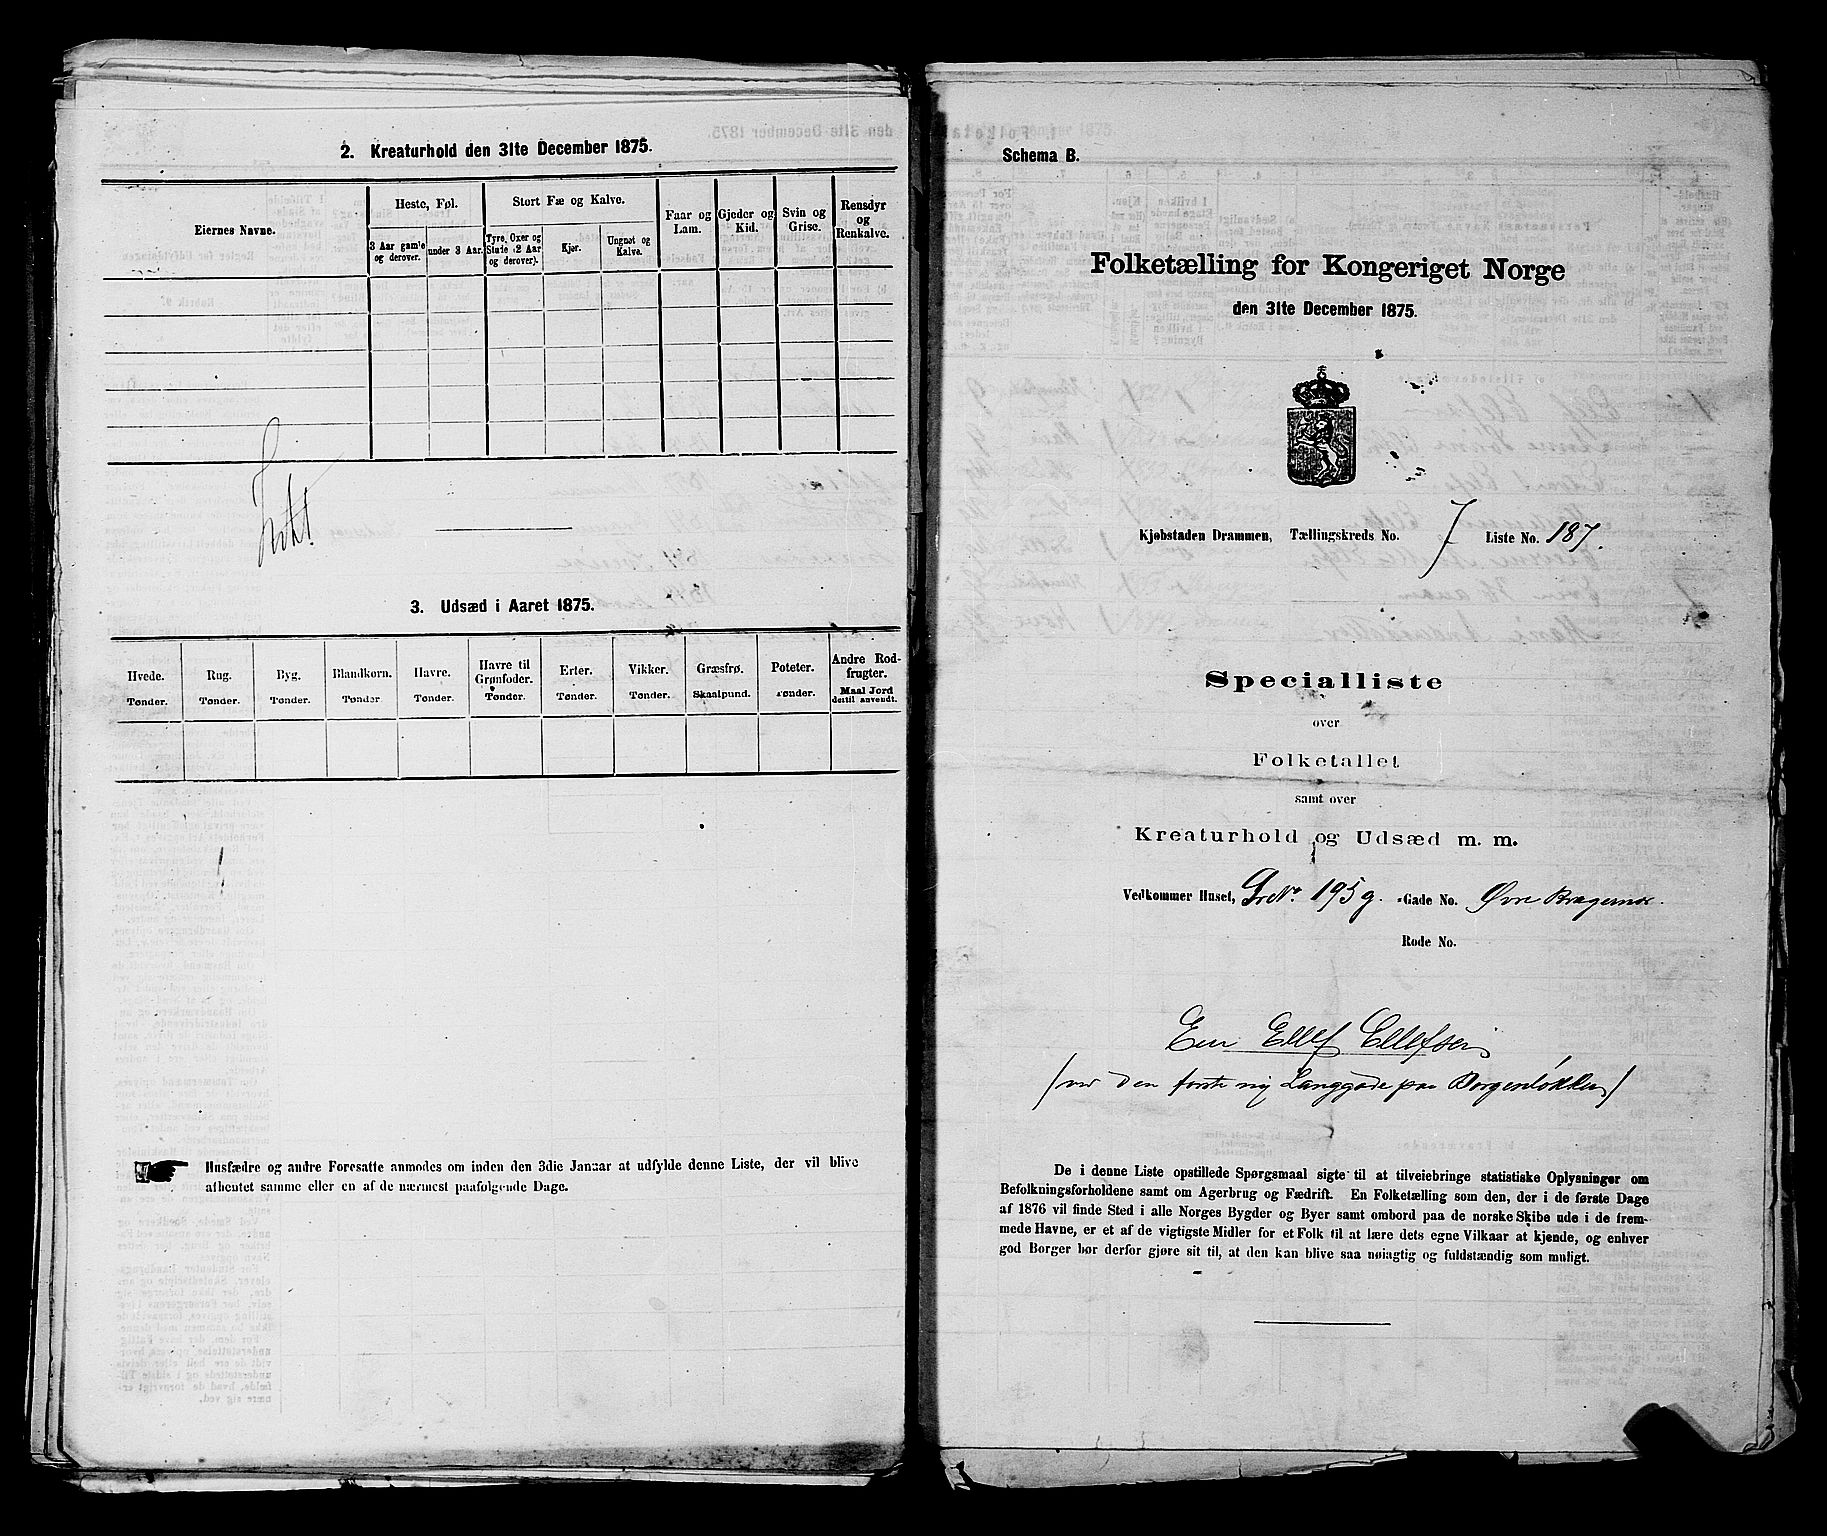 2. Kreaturhold den 31te December 1875.
Eiernes Navne.
Heste, Føl.
Stort Fæ og Kalve.
Faar og Lam.
Gjeder og Kid.
Svin og Grise.
Rensdyr og Renkalve.
3 Aar gamle og derover.
under 3 Aar.
Tyre, Oxer og Stude (2 Aar og derover).
Kjør.
Ungnøt og Kalve.
3. Udsæd i Aaret 1875.
Hvede. Tønder.
Rug. Tønder.
Byg. Tønder.
Blandkorn. Tønder
Havre. Tønder.
Havre til Grønfoder. Tønder.
Erter. Tønder.
Vikker. Tønder.
Græsfrø. Skaalpund.
Poteter. Tønder.
Andre Rodfrugter. Maal Jord dertil anvendt.
Husfædre og andre Foresatte anmodes om inden den 3die Januar at udfylde denne Liste, der vil blive
afhentet samme eller en af de nærmest paafølgende Dage.
Schema B.
Folketælling for Kongeriget Norge
den 31te December 1875.
Kjøbstaden Drammen, Tællingskreds No. 7 Liste No. 187.
Specialliste
over
Folketallet
samt over
Kreaturhold og Udsæd m. m.
Vedkommer Huset, Gr No. 195 g. -Gade No. Øvre Bragernæs.
Rode No.
Eier Ellef Ellefsen
(ved den første ny Langgade paa Borgenløkken)
De i denne Liste opstillede Spørgsmaal sigte til at tilveiebringe statistiske Oplysninger om
Befolkningsforholdene samt om Agerbrug og Fædrift. En Folketælling som den, der i de første Dage
af 1876 vil finde Sted i alle Norges Bygder og Byer samt ombord paa de norske Skibe ude i de frem-
mede Havne, er et af de vigtigste Midler for et Folk til at lære dets egne Vilkaar at kjende, og enhver
god Borger bør derfor gjøre sit til, at den kan blive saa nøiagtig og fuldstændig som muligt.